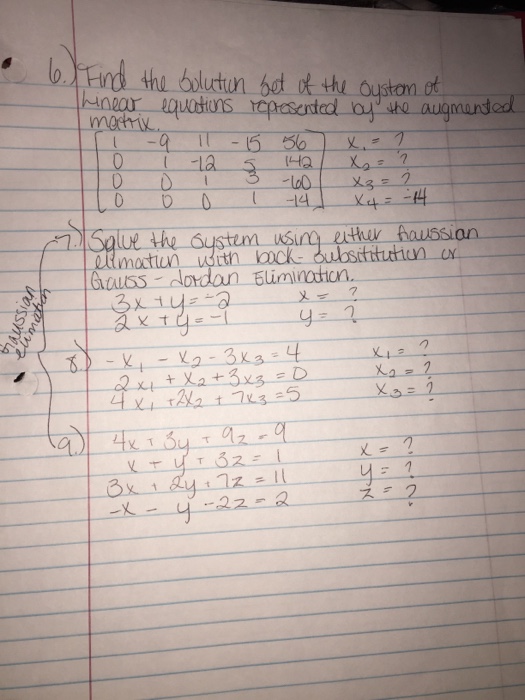 6.) Find the solution set of the system of
linear equations represented by the augmented
matrix.
1 -9 11 -15 56 x₁ = ?
0 1 -12 5 142 x₂ = ?
0 0 1 3 -60 x₃ = ?
0 0 0 1 -14 x₄ = -14
7.) Solve the system using either Gaussian
elimation with back-subsititution or
Gauss-Jordan Elimination.
3x + y = -2 x = ?
2x + y = -1 y = ?
Gaussian
elimation
8) -x₁ - x₂ - 3x₃ = 4 x₁ = ?
2x₁ + x₂ + 3x₃ = 0 x₂ = ?
4x₁ + 2x₂ + 7x₃ = 5 x₃ = ?
9.) 4x + 3y + 9z = 9
x + y + 3z = 1 x = ?
3x + 2y + 7z = 11 y = ?
-x - y - 2z = 2 z = ?